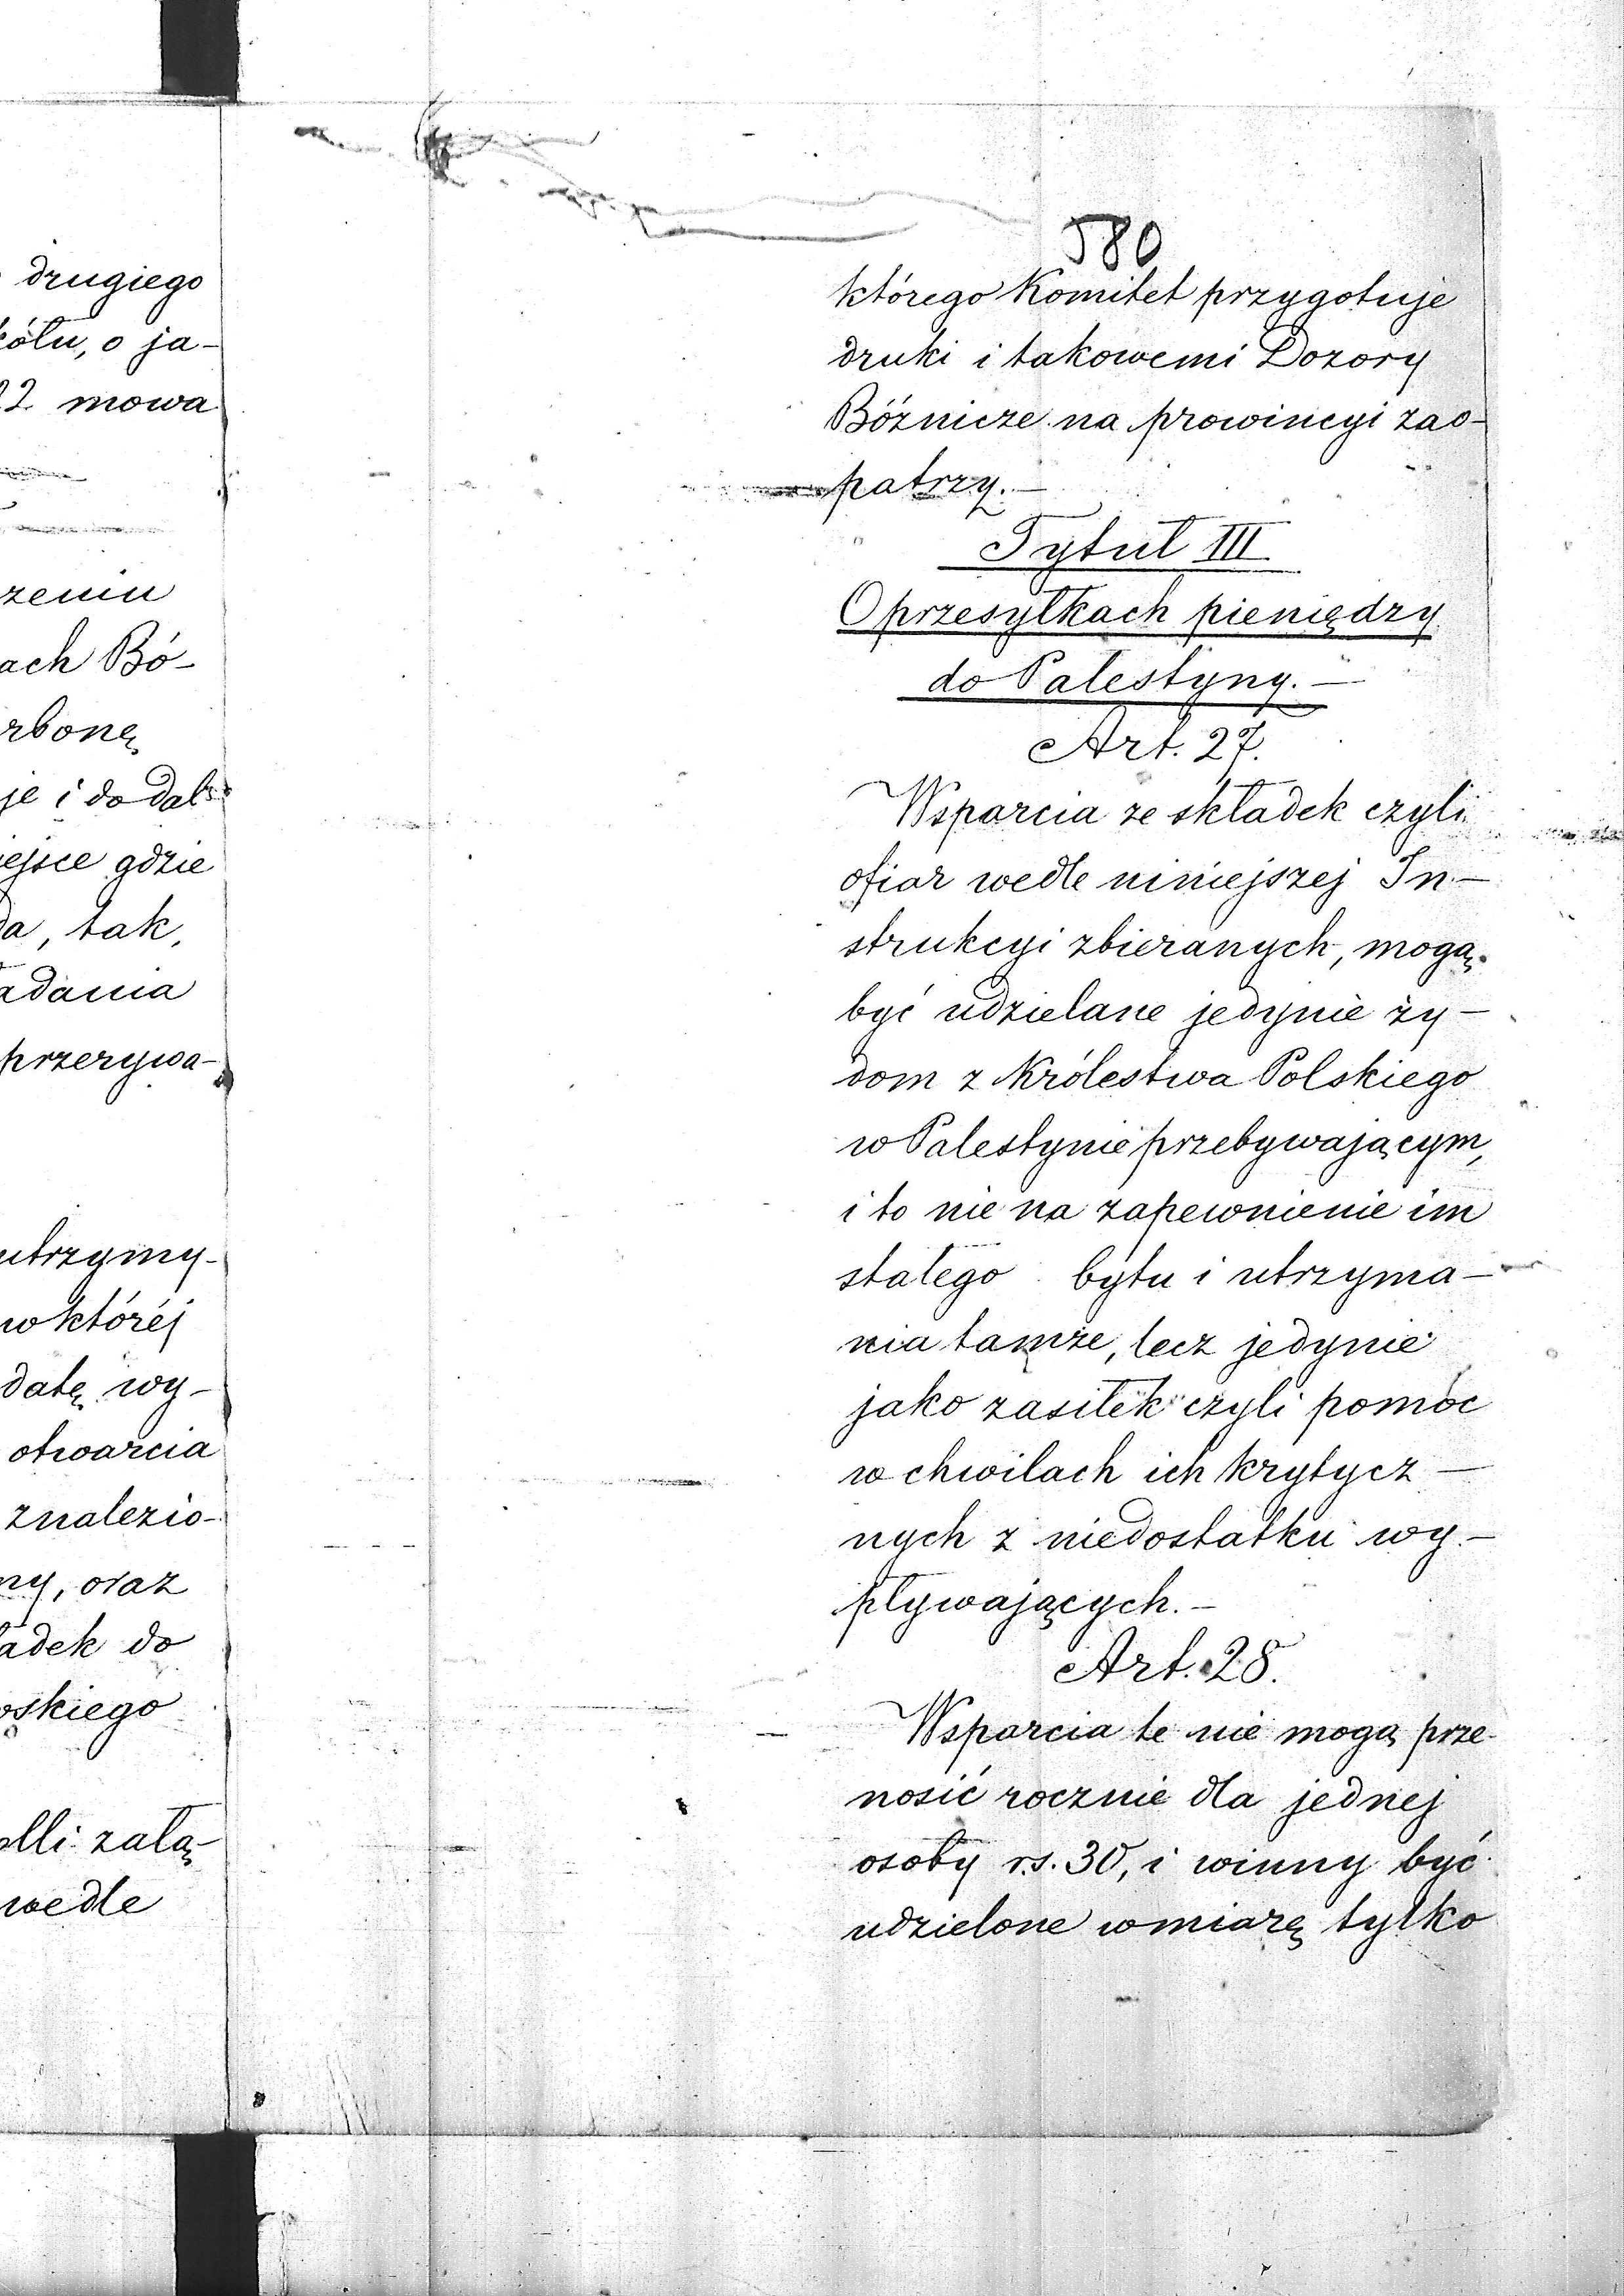 drugiego
kółu, o ja-
22 mowa
zeniu
ach Bó-
rbonę
je i do dal
iejsce gdzie
da, tak,
adania
przerywa-
utrzymy-
w któréj
datę wy-
otwarcia
znalezio-
ny, oraz
adek do
oskiego
olli załą-
wedle
580
którego Komitet przygotuje
druki i takowemi Dozory
Bóżnicze na prowincyi zao-
patrzy.—
Tytuł III
O przesyłkach pieniędzy
do Palestyny.—
Art. 27.
Wsparcia ze składek czyli
ofiar wedle niniejszej In-
strukcyi zbieranych, mogą
być udzielane jedynie ży-
dom z Królestwa Polskiego
w Palestynie przebywającym,
i to nie na zapewnienie im
stałego bytu i utrzyma-
nia tamże, lecz jedynie
jako zasiłek czyli pomoc
w chwilach ich krytycz-
nych z niedostatku wy-
pływających.—
Art. 28.
Wsparcia te nie mogą prze-
nosić rocznie dla jednej
osoby rs. 30, i winny być
udzielone w miarę tylko